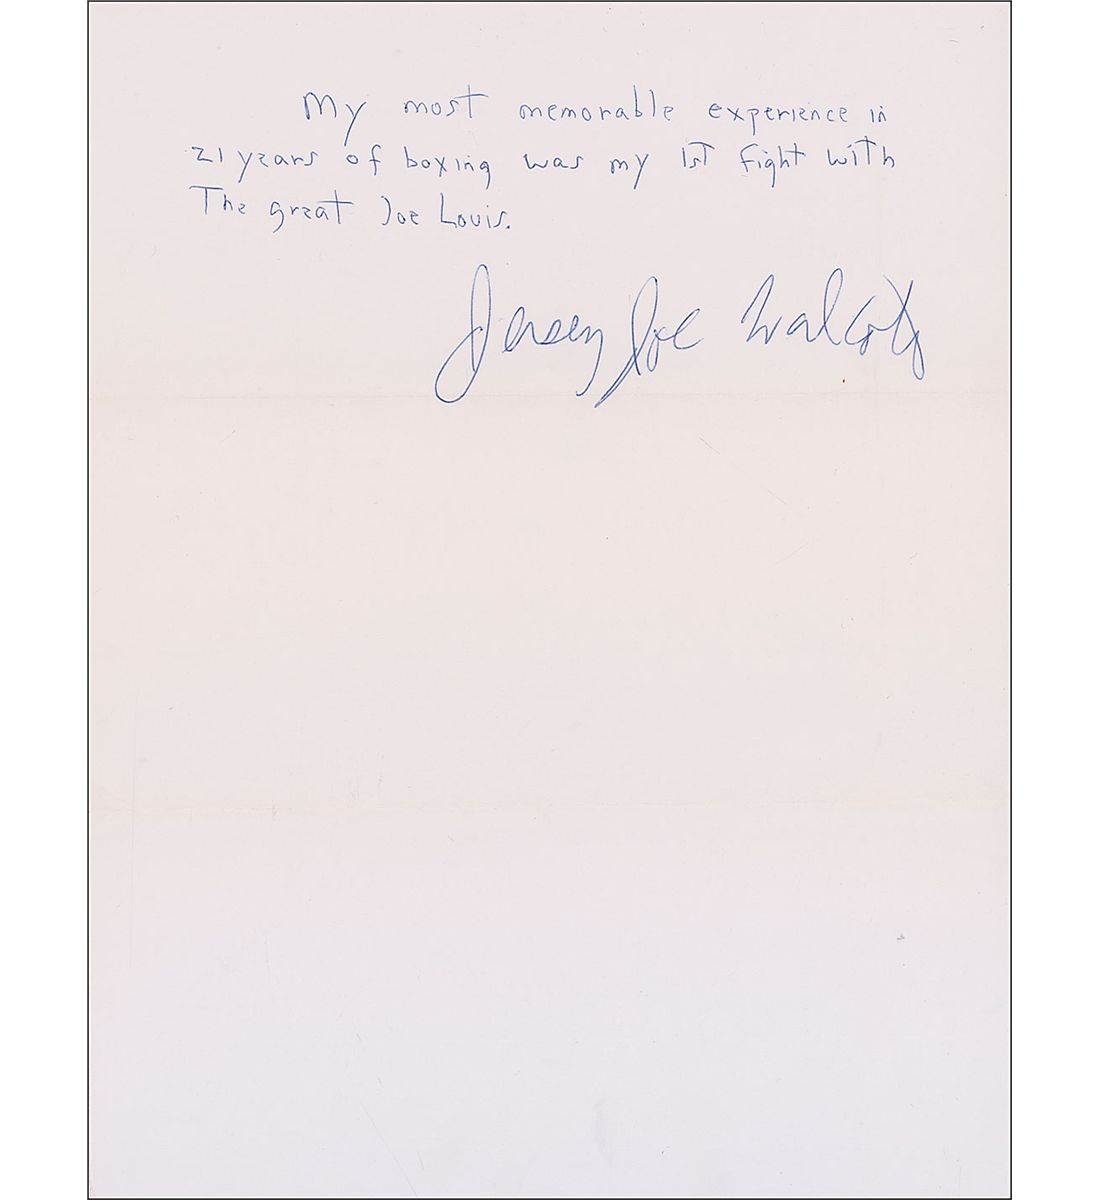 My most memorable experience in
21 years of boxing was my 1st fight with
The great Joe Louis.
Jersey Joe Walcott